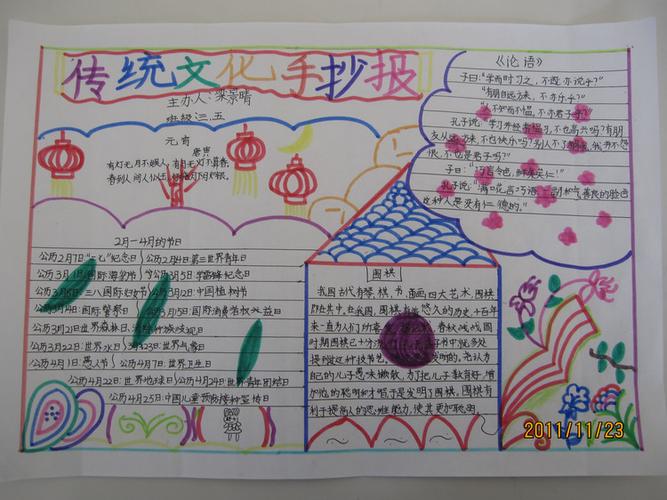 传统文化手抄报
主办人:梁景晴
班级三、五
元宵
唐寅
有灯无月不娱人,有月无灯不算春。
春到人间人似玉,灯烧月下月如银。
2月一4月的节日
公历2月7日"二七"纪念日 公历2月24日第三世界青年日
公历3月1日国际海豹节 公历3月5日学雷锋纪念日
公历3月8日三八国际妇女节 公历3月12日:中国植树节
公历3月14日:国际警察日 公历3月15日:国际消费者权益日
公历3月21日世界森林日、消除种族歧视日
公历3月22日世界水日 3月23日世界气象日
公历4月1日愚人节 公历4月7日:世界卫生日
公历4月22日世界地球日 公历4月24日世界青年团结日
公历4月25日中国儿童预防接种宣传日
《论语》
子曰:"学而时习之,不亦说乎?"
"有朋自远方来,不亦乐乎?"
"人不知而不愠,不亦君子乎?"
孔子说:学习并经常温习,不也高兴吗?有朋
友从远方来,不也快乐吗?别人不了解我,我亦不怨
恨,不也是君子吗?
子曰:"巧言令色,鲜矣仁!"
孔子说:"满口花言巧语,一副和气善良的脸色
这种人是没有仁德的。"
围棋
我国古代有琴、棋、书、画四大艺术,围棋
即在其中。在我国,围棋有着悠久的历史,千百年
来一直为人们所喜爱。春秋战国
时期围棋已十分流行
自己的儿子愚味懒散,为了把儿子教育好,增
加他的聪明才智于是发明了围棋。围棋有
利于提高人的思维能力,使其更加聪明。
2011/11/23